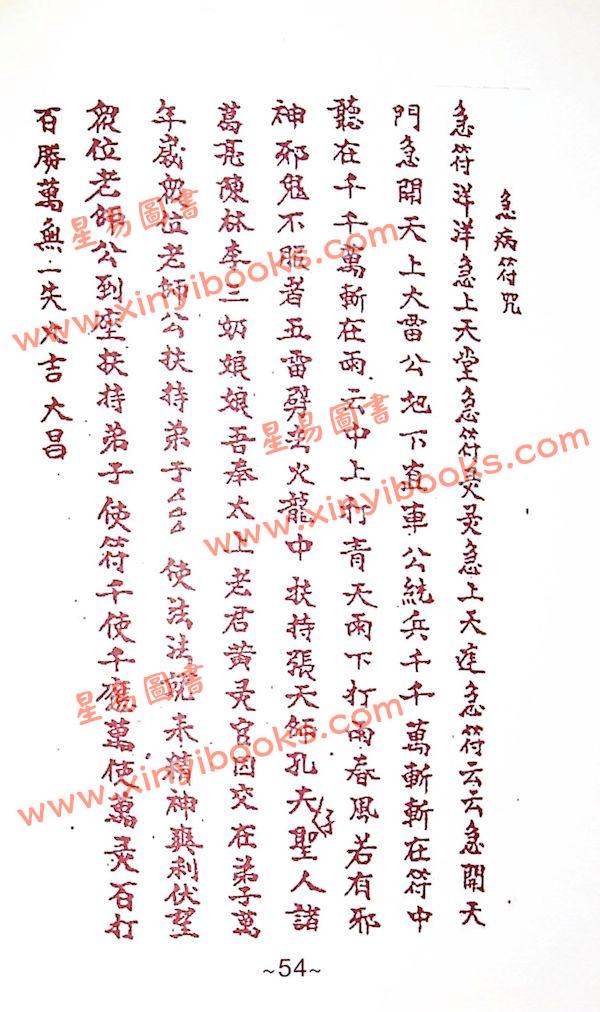 急病符咒
急符洋洋急上天堂急符灵灵急上天莛急符云云急開天
門急開天上大雷公地下直車公統兵千千萬斬斬在符中
聽在千千萬斬在雨云中上打青天雨下打雨春風若有邪
神邪鬼不服者五雷劈去火龍中扶持張天師孔夫仔聖人諸
葛亮陳林李三奶娘娘吾奉太上老君黄灵官因交在弟子萬
年歲眾位老師公扶持弟子厶厶使法法完未精神爽利伏望
眾位老師公到座扶持弟子使符千使千應萬使萬灵百打
百勝萬無一失大吉大昌
~54~
星易圖書
www.xinyibooks.com
星易圖書
www.xinyibooks.com
星易圖書
www.xinyibooks.com